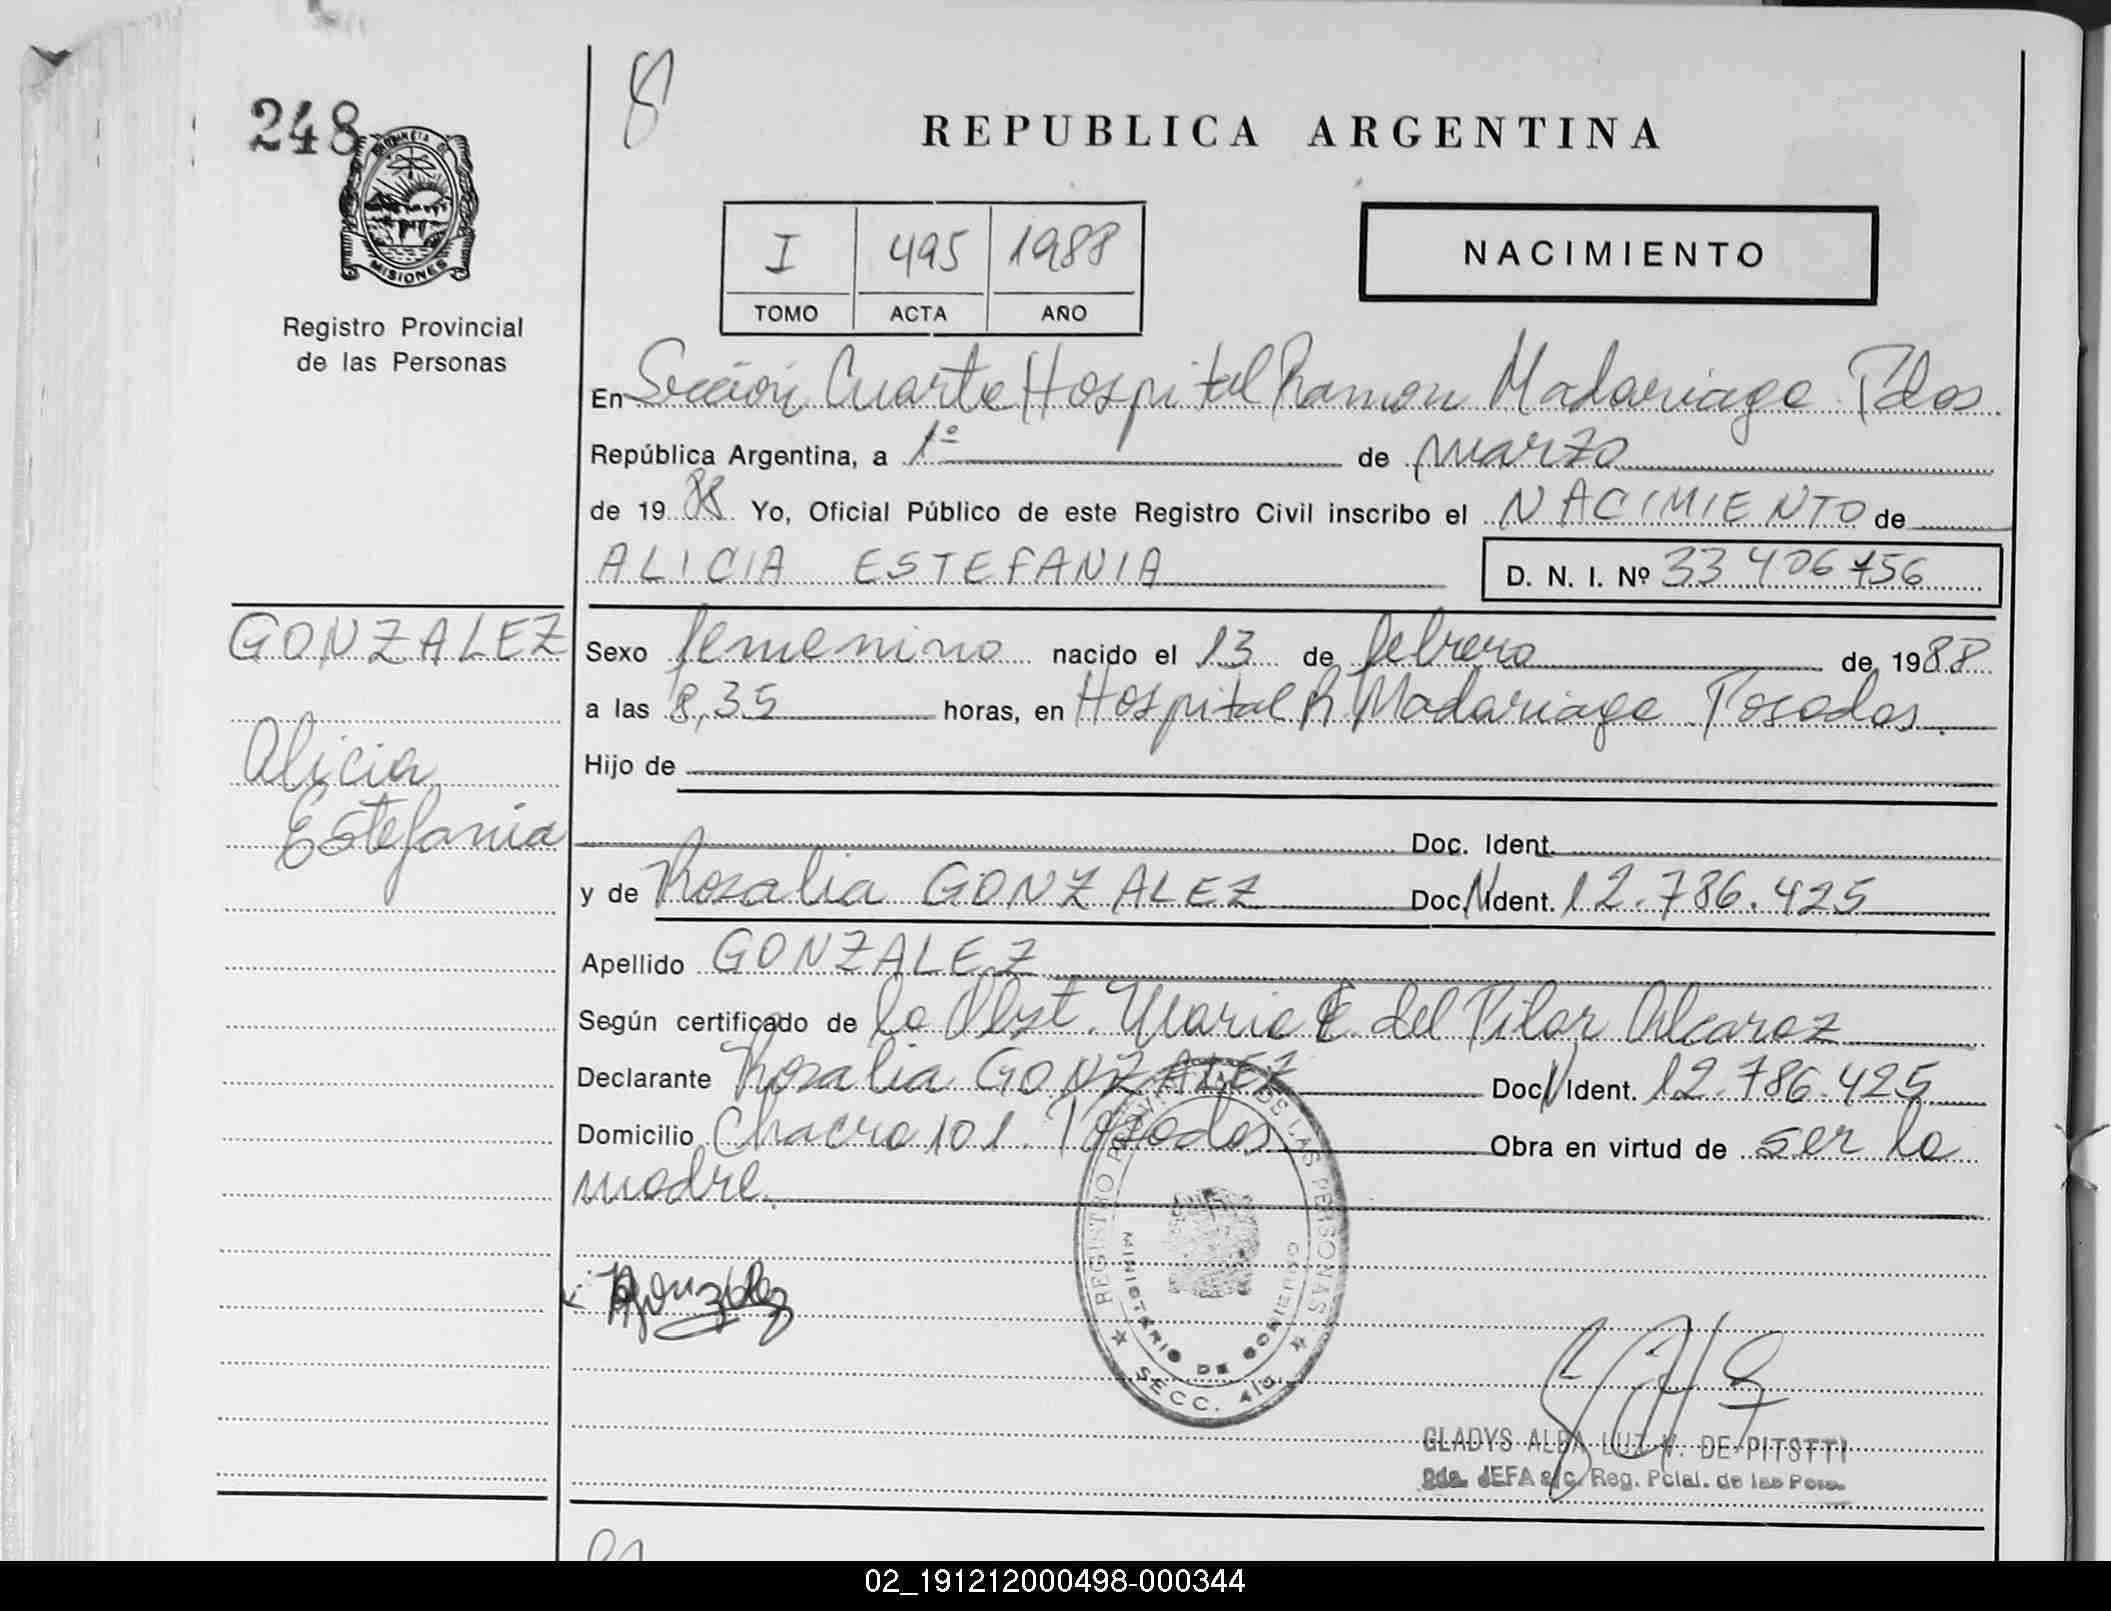 248
8
REPUBLICA ARGENTINA
PROVINCIA DE
MISIONES
Registro Provincial
de las Personas
I 495 1988
TOMO ACTA AÑO
NACIMIENTO
En Sección Cuarta Hospital Ramon Madariaga Pdas
República Argentina, a 1º de marzo
de 1988 Yo, Oficial Público de este Registro Civil inscribo el NACIMIENTO de
ALICIA ESTEFANIA D. N. I. Nº 33 406 456
GONZALEZ
Alicia
Estefania
Sexo femenino nacido el 13 de febrero de 1988
a las 8,35 horas, en Hospital R Madariaga Posadas.
Hijo de
Doc. Ident.
y de Rosalia GONZALEZ Doc. N Ident. 12.786.425
Apellido GONZALEZ
Según certificado de la Obst. Maria E. del Pilar Alcaraz
Declarante Rosalia GONZALEZ Doc. N Ident. 12.786.425
Domicilio Chacra 101. Posadas Obra en virtud de ser la
madre.
REGISTRO PROVINCIAL DE LAS PERSONAS
MINISTERIO DE GOBIERNO
SECC. 4ta.
RGonzález
GLADYS ALBA LUZ V. DE PITSTTI
2da. JEFA a/c. Reg. Pcial. de las Pers.
02_191212000498-000344